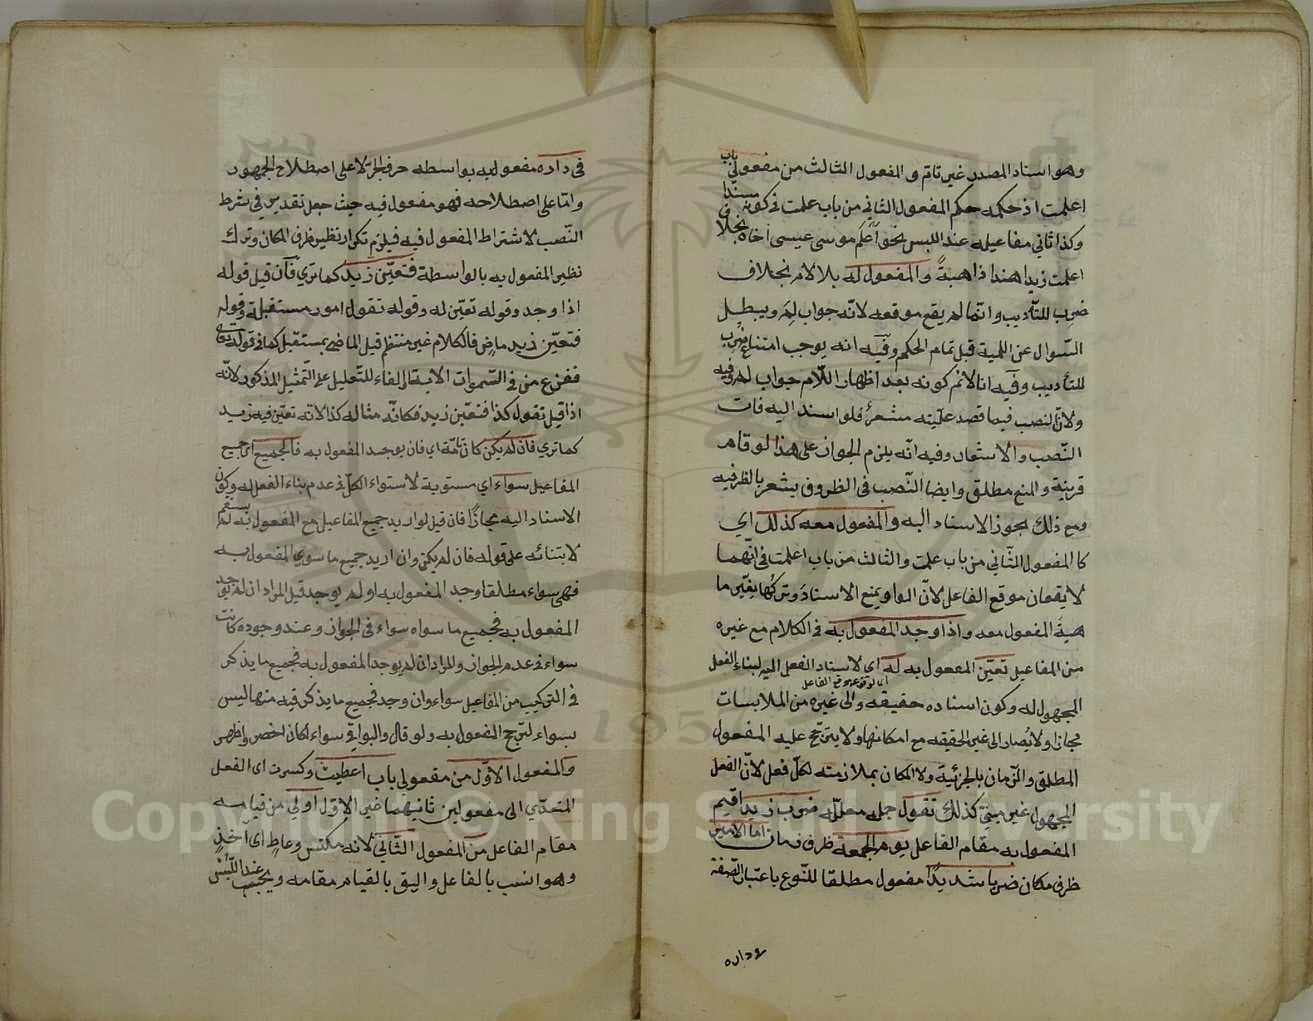 وهو اسناد المصدر غير تام و المفعول الثالث من مفعولي باب
اعلمت اذ حكمه حكم المفعول الثاني من باب علمت في كونه مسندا
وكذا ثاني مفاعيله عند اللبس نحو اعلم موسى عيسى اخاه بخلاف
اعلمت زيدا هندا ذاهبة و المفعول له بلا لام بخلاف
ضرب للتأديب وانما لم يقع موقعه لانه جواب لم ويبطل
السوال عن اللمية قبل تمام الحكم وفيه انه يوجب امتناع ضرب
للتأديب وفيه انا لا نم كونه بعد اظهار اللام جواب لم وفيه
ولان النصب فيما قصد عليته مشعر فلو اسند اليه فات
النصب والاشعار وفيه انه يلزم الجواز على هذا لو قام
قرينة والمنع مطلق وايضا النصب في الظروف يشعر بالظرفيه
ومع ذلك يجوز الاسناد اليه و المفعول معه كذلك اي
كالمفعول الثاني من باب علمت والثالث من باب اعلمت في انهما
لا يقعان موقع الفاعل لان الواو يمنع الاسناد وتركها يغير ما
هية المفعول معه و اذا وجد المفعول به في الكلام مع غيره
من المفاعيل تعين المفعول به له اي لاسناد الفعل اليه لبناء الفعل
المجهول له وكون اسناده حقيقه والى غيره من الملابسات
مجازا ولا يصار الى غير الحقيقه مع امكانها ولا يترجح عليه المفعول
المطلق والزمان بالجزئية ولا المكان بملازمته لكل فعل لان الفعل
المجهول غير مبني كذلك تقول جمله معلله ضرب زيد اقيم
المفعول به مقام الفاعل يوم الجمعة ظرف زمان امام الامير
ظرف مكان ضربا شديدا مفعول مطلقا للنوع باعتبار الصفة
في داره
في داره مفعول به بواسطه حرف الجر لا على اصطلاح الجمهور
واما على اصطلاحه فهو مفعول فيه حيث جعل تقدير في شرط
النصب لا شتراط المفعول فيه فيلزم تكرار نظير ظرف المكان وترك
نظير المفعول به بالواسطة فتعين زيد كما ترى فان قيل قوله
اذا وجد وقوله تعين له وقوله تقول امور مستقبلة وقوله
فتعين زيد ماض فالكلام غير منتظم قيل الماضي بمستقبل كما في قوله تعالى
ففزع من في السموات الاية الفاء للتعليل على التمثيل المذكور لانه
اذا قيل تقول كذا فتعين زيد فكانه مثاله كذا لانه تعين فيه زيد
كما ترى فان لم يكن كان تامة اي فان يوجد المفعول به فالجميع اي جميع
المفاعيل سواء اي مستوية لاستواء الكل في عدم بناء الفعل له وكون
الاسناد اليه مجازا فان قيل لو اريد جميع المفاعيل مع المفعول به لم يستقم
لابتنائه على قوله فان لم يكن وان اريد جميع ما سوى المفعول به
فهي سواء مطلقا وجد المفعول به او لم يوجد قيل المراد ان لم يوجد
المفعول به فجميع ما سواه سواء في الجواز وعند وجوده كانت
سواء في عدم الجواز والمراد ان لم يوجد المفعول به فجميع ما يذكر
في التركيب من المفاعيل سواء وان وجد فجميع ما يذكر فيه منها ليس
بسواء لترجح المفعول به ولو قال والبواقي سواء لكان اخصر واظهر
و المفعول الاول من مفعولي باب اعطيت وكسرت اي الفعل
المتعدي الى مفعولين ثانيهما غير الاول اولى من قيامه
مقام الفاعل من المفعول الثاني لانه مكتس وعاط اي اخذ
وهو انسب بالفاعل واليق بالقيام مقامه ويجب عند اللبس
Copyright © King Saud University
1957